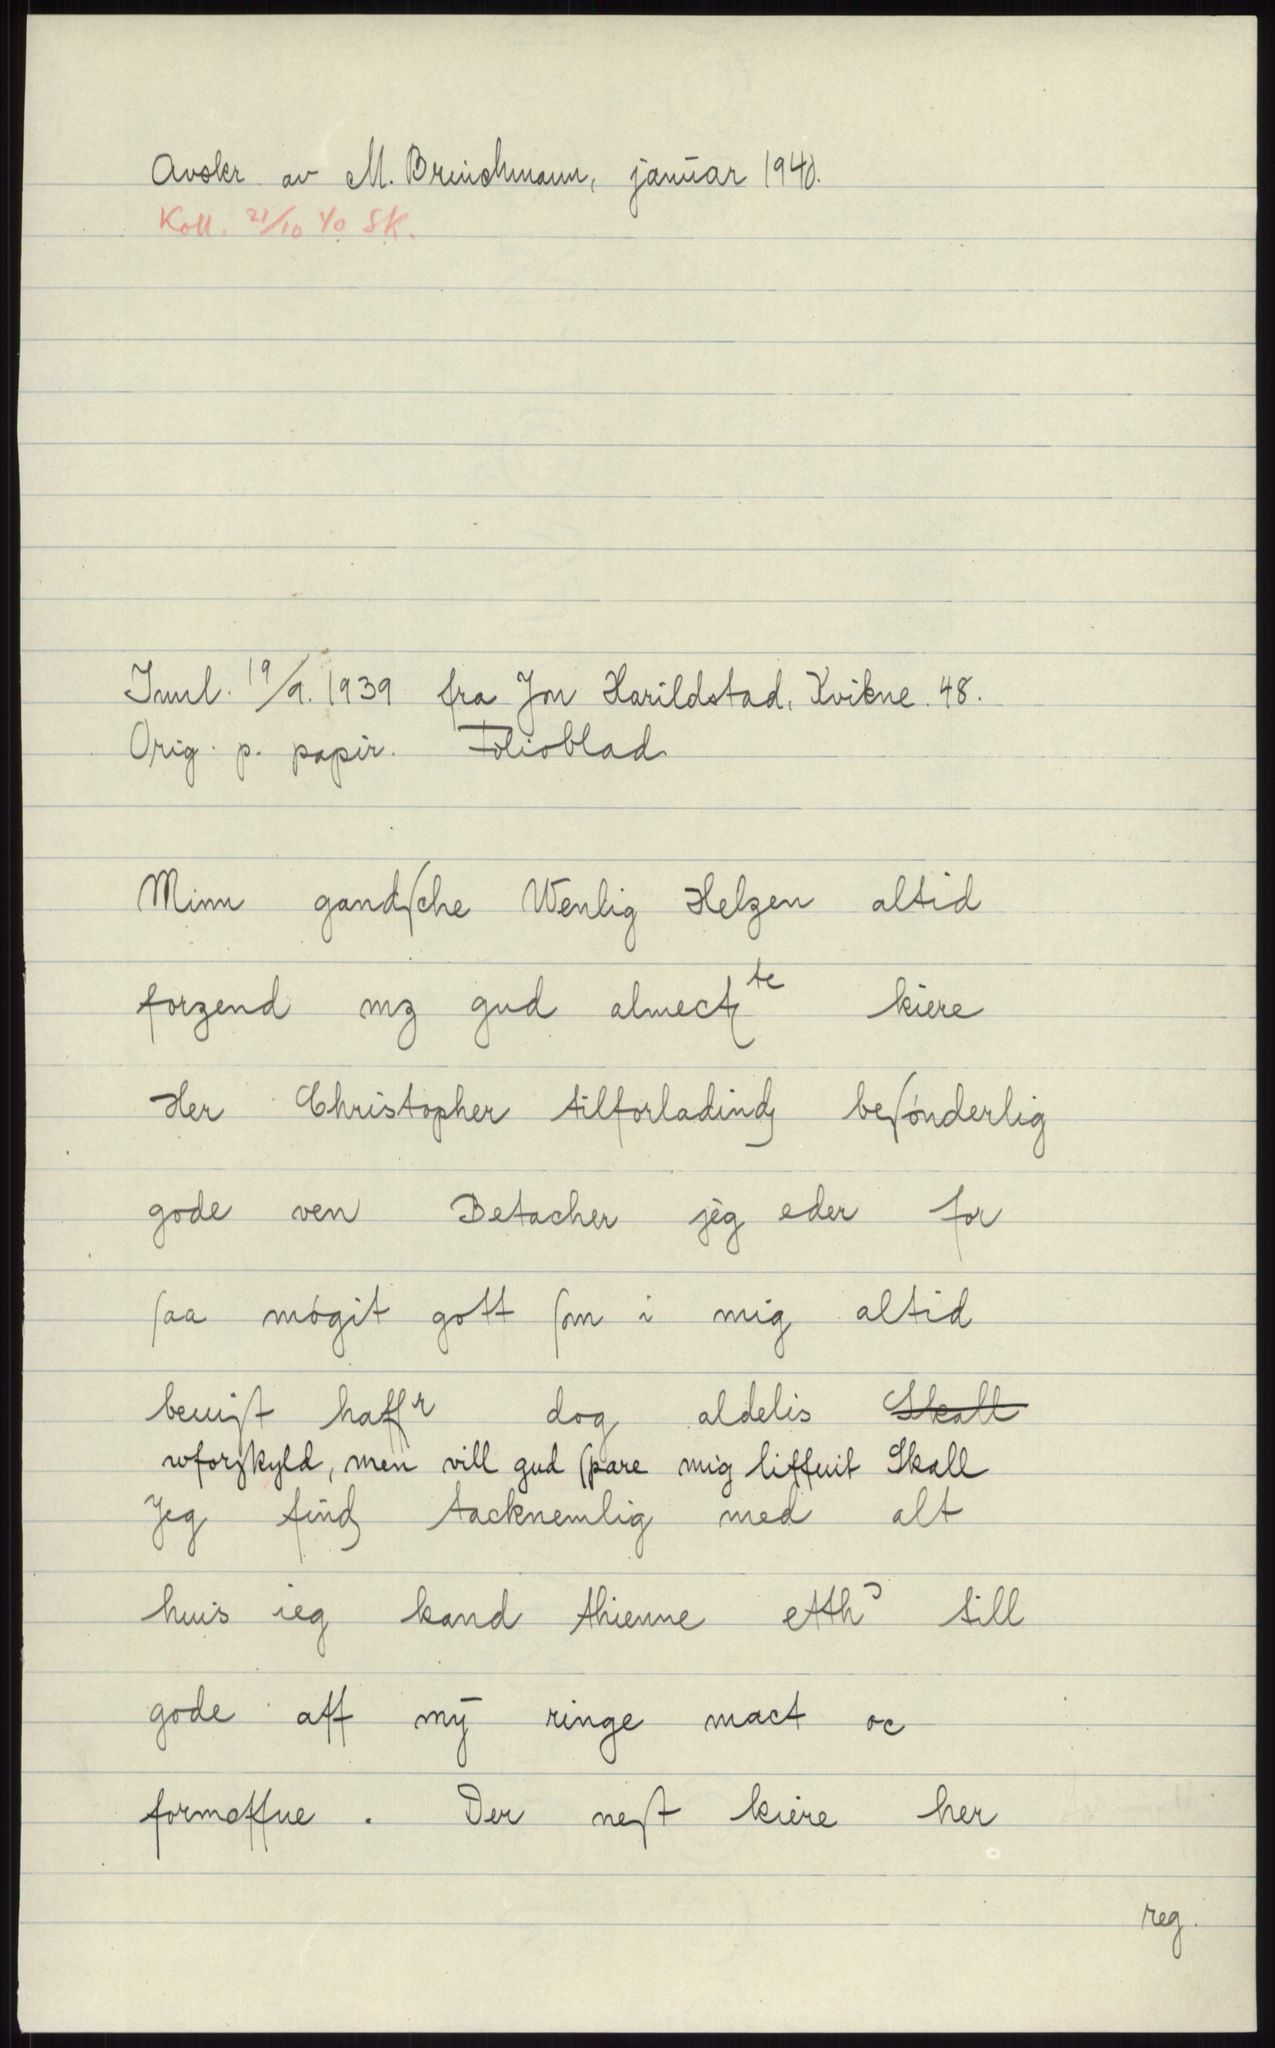 Avskr. av M. Brinchmann, januar 1940.
Koll. 21/10 40 SK.
Innl. 19/9. 1939 fra Jon Harildstad, Kvikne. 48.
Orig. p. papir. Folioblad
Minn gandſche Wenlig Helzen altid
forzend mz gud almectte kiere
Her Christopher tilforladindz beſónderlig
gode ven Betacher jeg eder for
ſaa mögit gott ſom i mig altid
beuiſt haffr dog aldelis Skall
wforſkyld, men vill gud ſpare mig liffuit Skall
Jeg findz tacknemlig med alt
huis ieg kand thienne etth till
gode aff mÿ ringe mact oc
formeffue. Der neſt kiere her
reg.